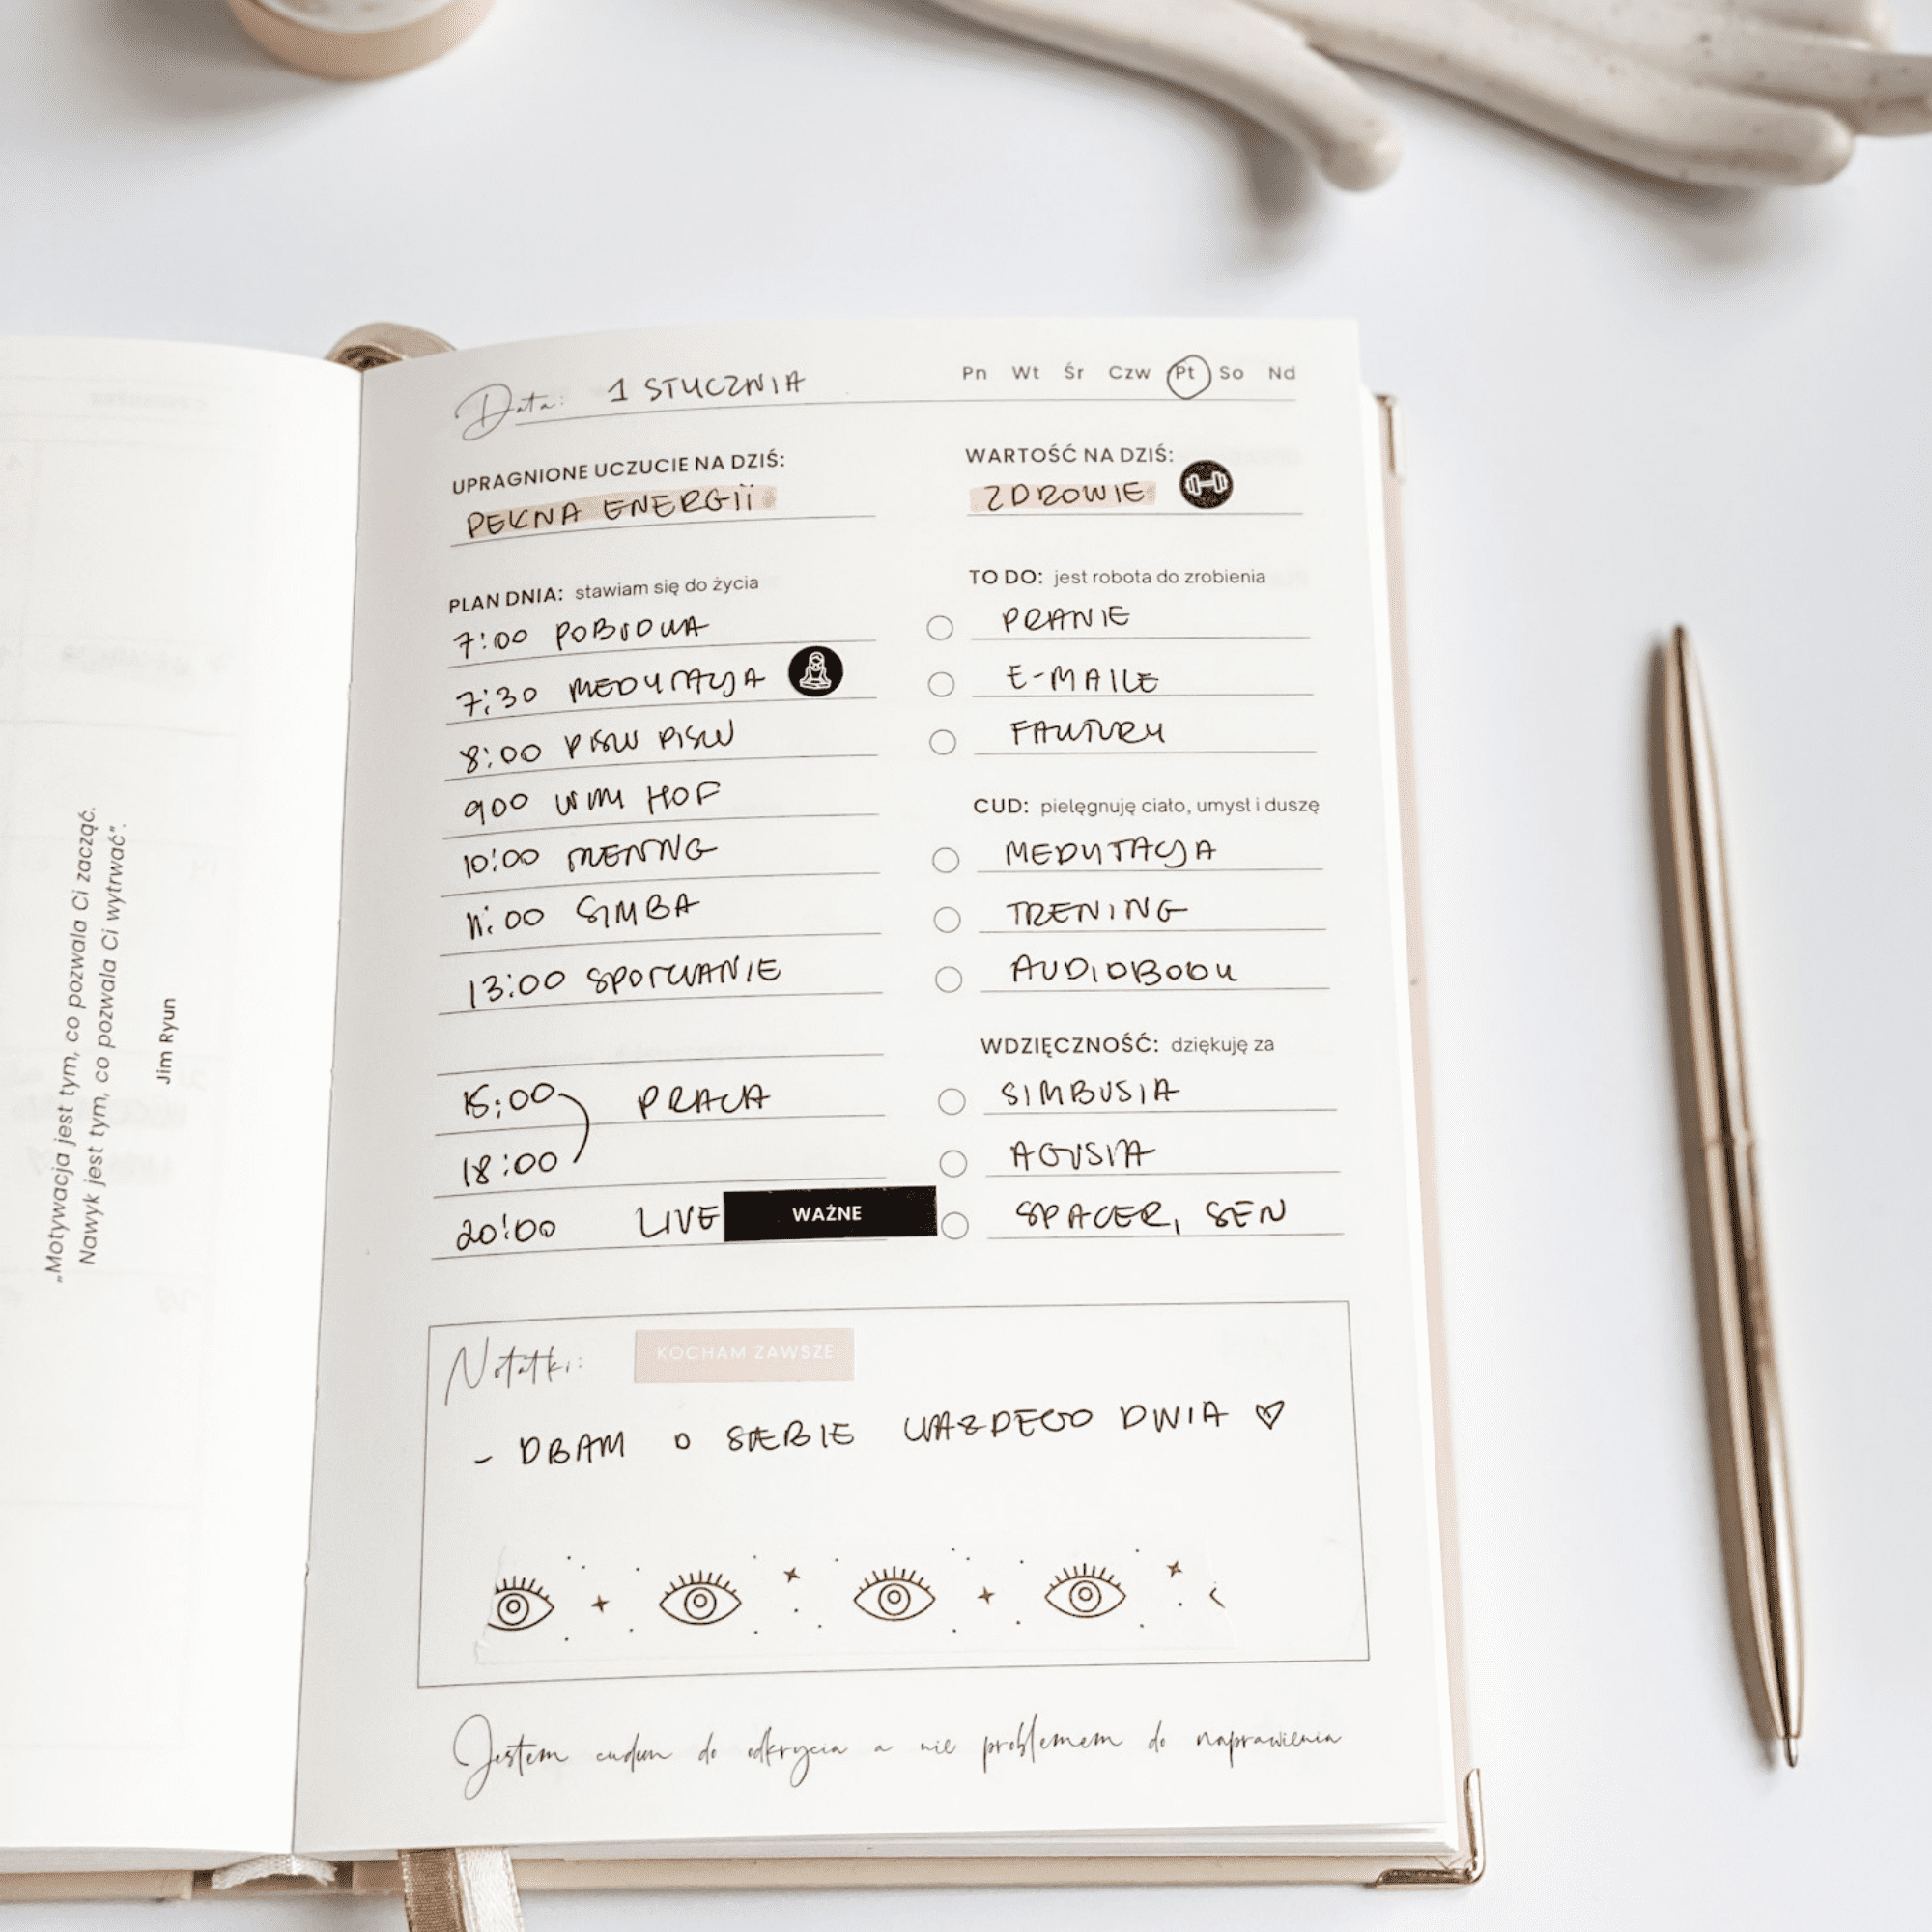 „Motywacja jest tym, co pozwala Ci zacząć.
Nawyk jest tym, co pozwala Ci wytrwać”.
Jim Ryun
Data: 1 STYCZNIA
Pn Wt Śr Czw Pt So Nd
UPRAGNIONE UCZUCIE NA DZIŚ:
PEŁNA ENERGII
WARTOŚĆ NA DZIŚ:
ZDROWIE
PLAN DNIA: stawiam się do życia
7:00 POBUDKA
7:30 MEDYTACJA
8:00 PISU PISU
900 WIM HOF
10:00 TRENING
11:00 SIMBA
13:00 SPOTKANIE
15:00 PRACA
18:00
20:00 LIVE WAŻNE
TO DO: jest robota do zrobienia
PRANIE
E-MAILE
FAKTURY
CUD: pielęgnuję ciało, umysł i duszę
MEDYTACJA
TRENING
AUDIOBOOK
WDZIĘCZNOŚĆ: dziękuję za
SIMBUSIA
AGUSIA
SPACER, SEN
Notatki: KOCHAM ZAWSZE
- DBAM O SIEBIE KAŻDEGO DNIA
Jestem cudem do odkrycia a nie problemem do naprawienia